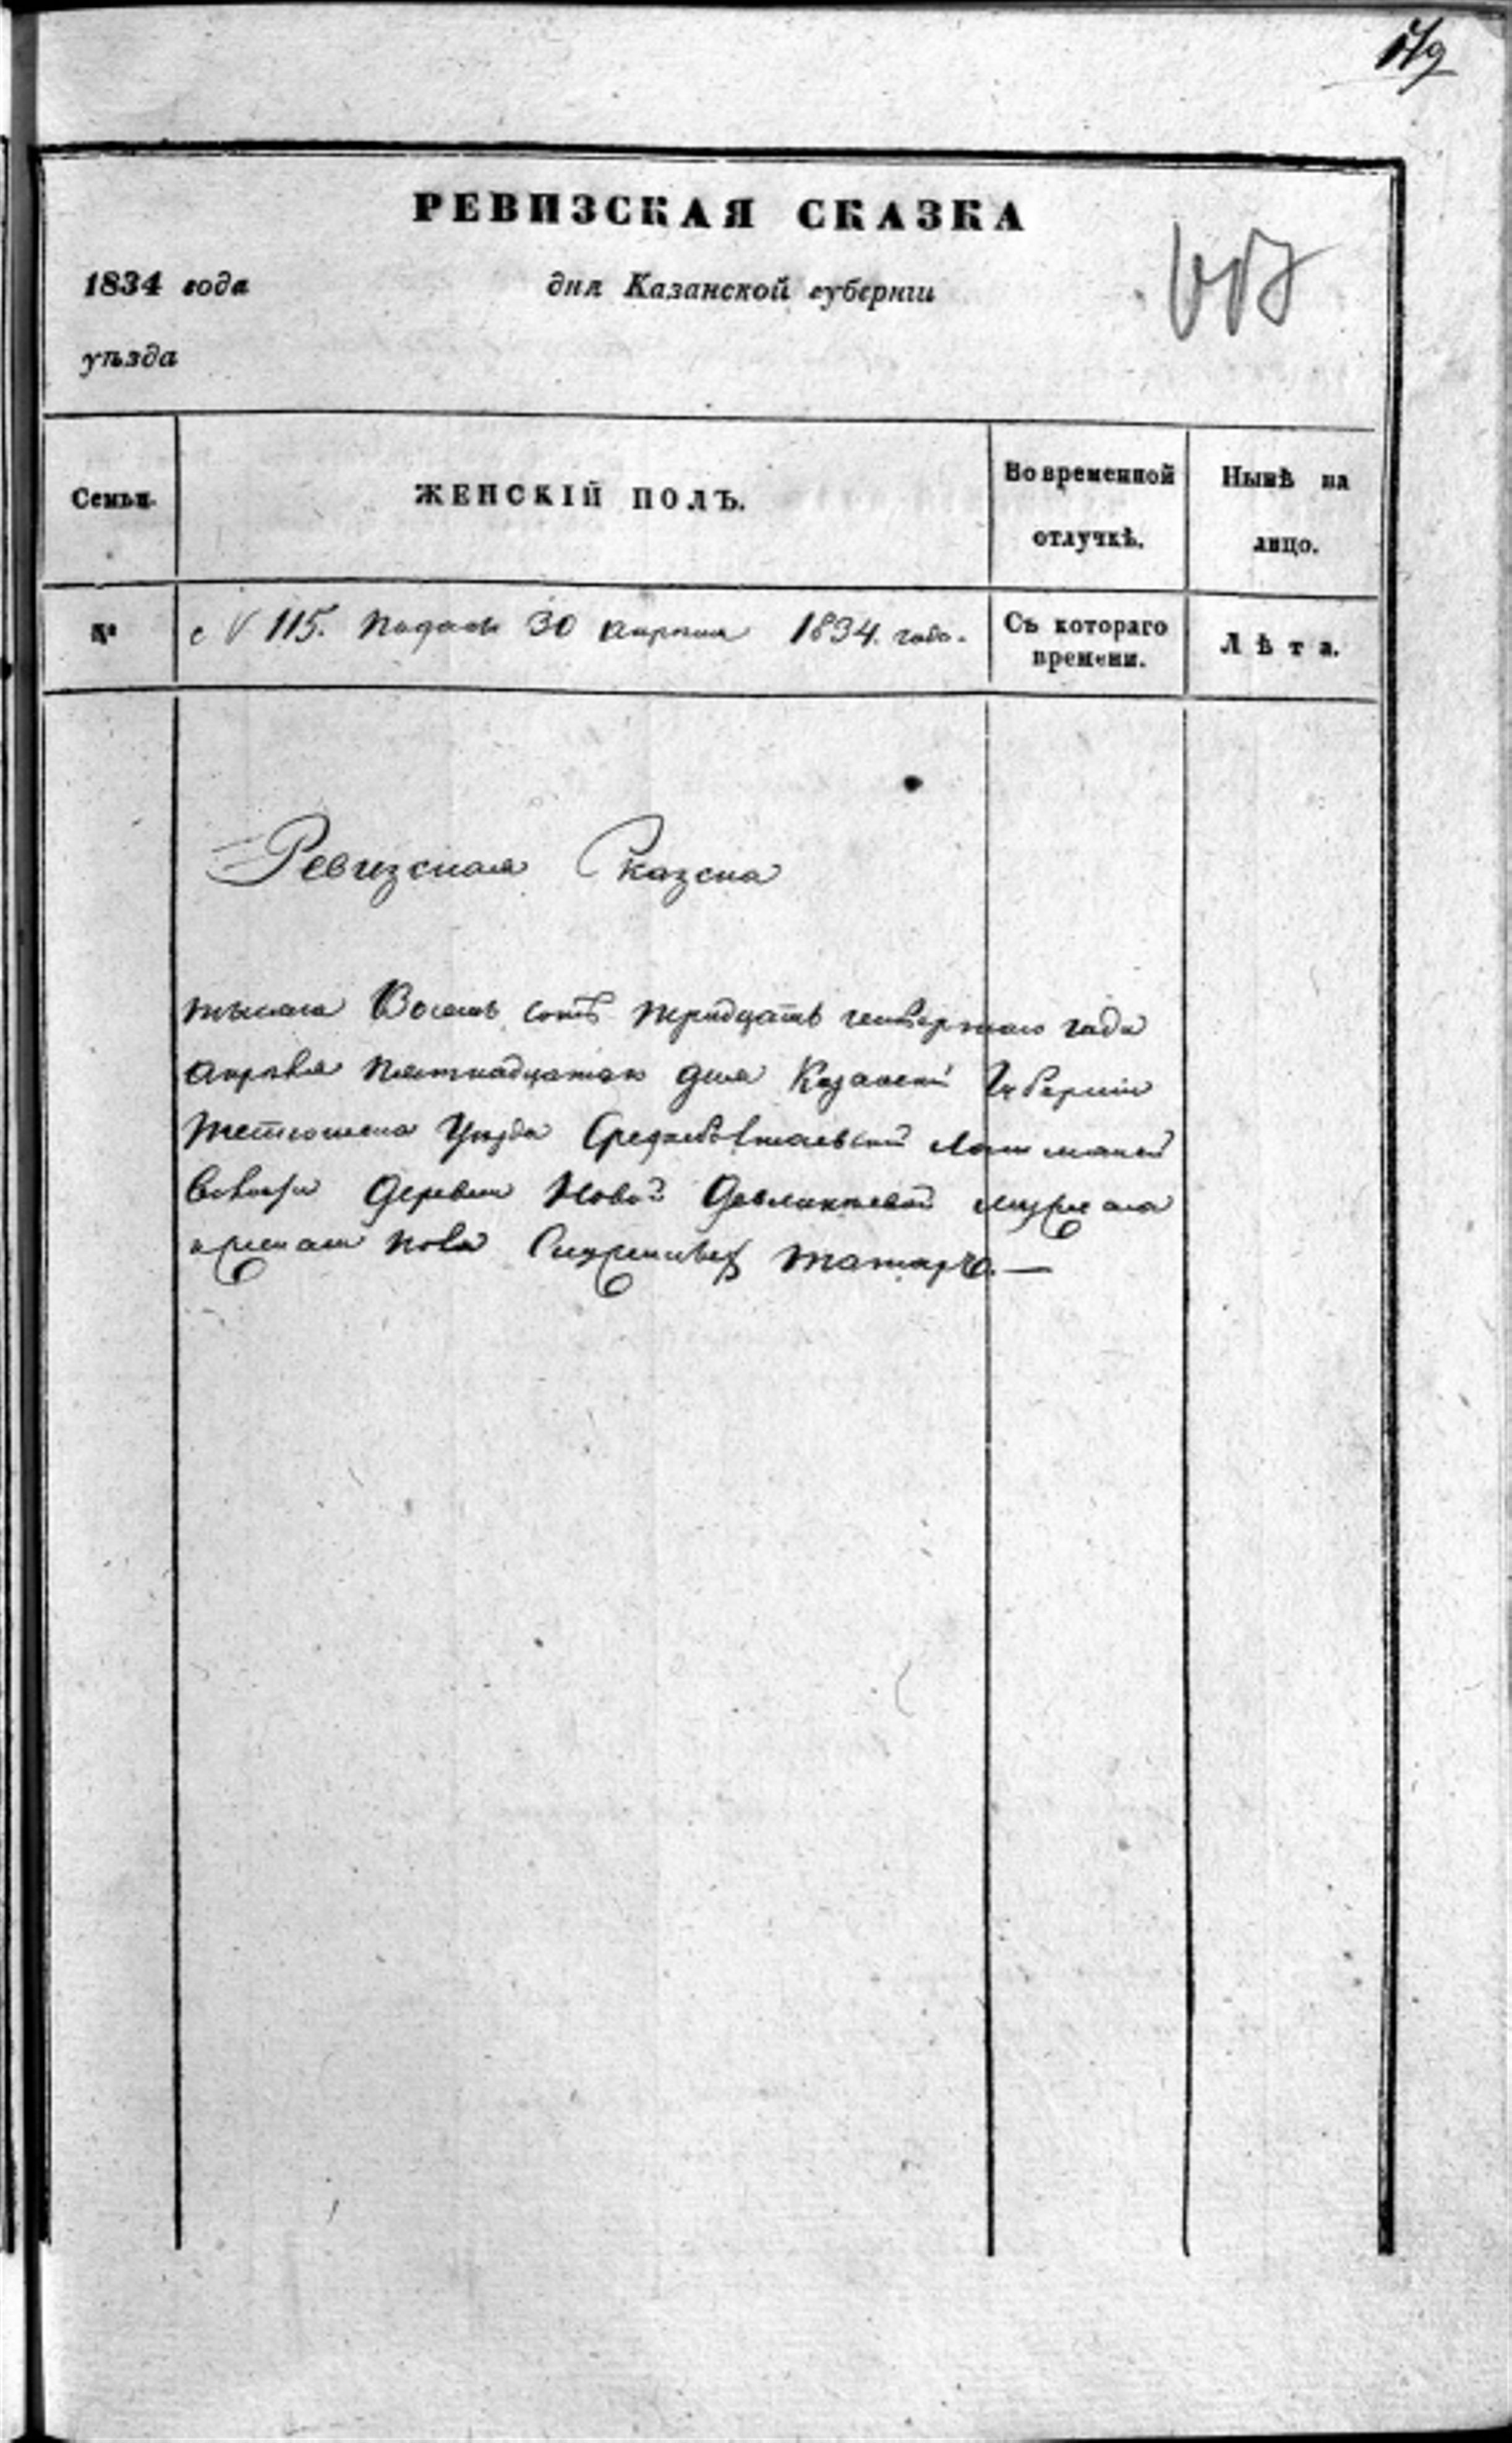 РЕВИЗСКАЯ СКАЗКА
1834 года дня Казанской губернiи
уѣзда
Семьи.
ЖЕНСКIЙ ПОЛЪ.
Во временной отлучкѣ.
Нынѣ на лицо.
№
115. Подана 30 апреля 1834. года.
Съ котораго времени.
Лѣта.
Ревизская Сказка
тысяча Восемь сотъ тридцать четвертаго года
апреля пятнадцатаго дня Казанской Губернiи
Тетюшска Уезда лашманской
волости Деревни Новой
татаръ.—